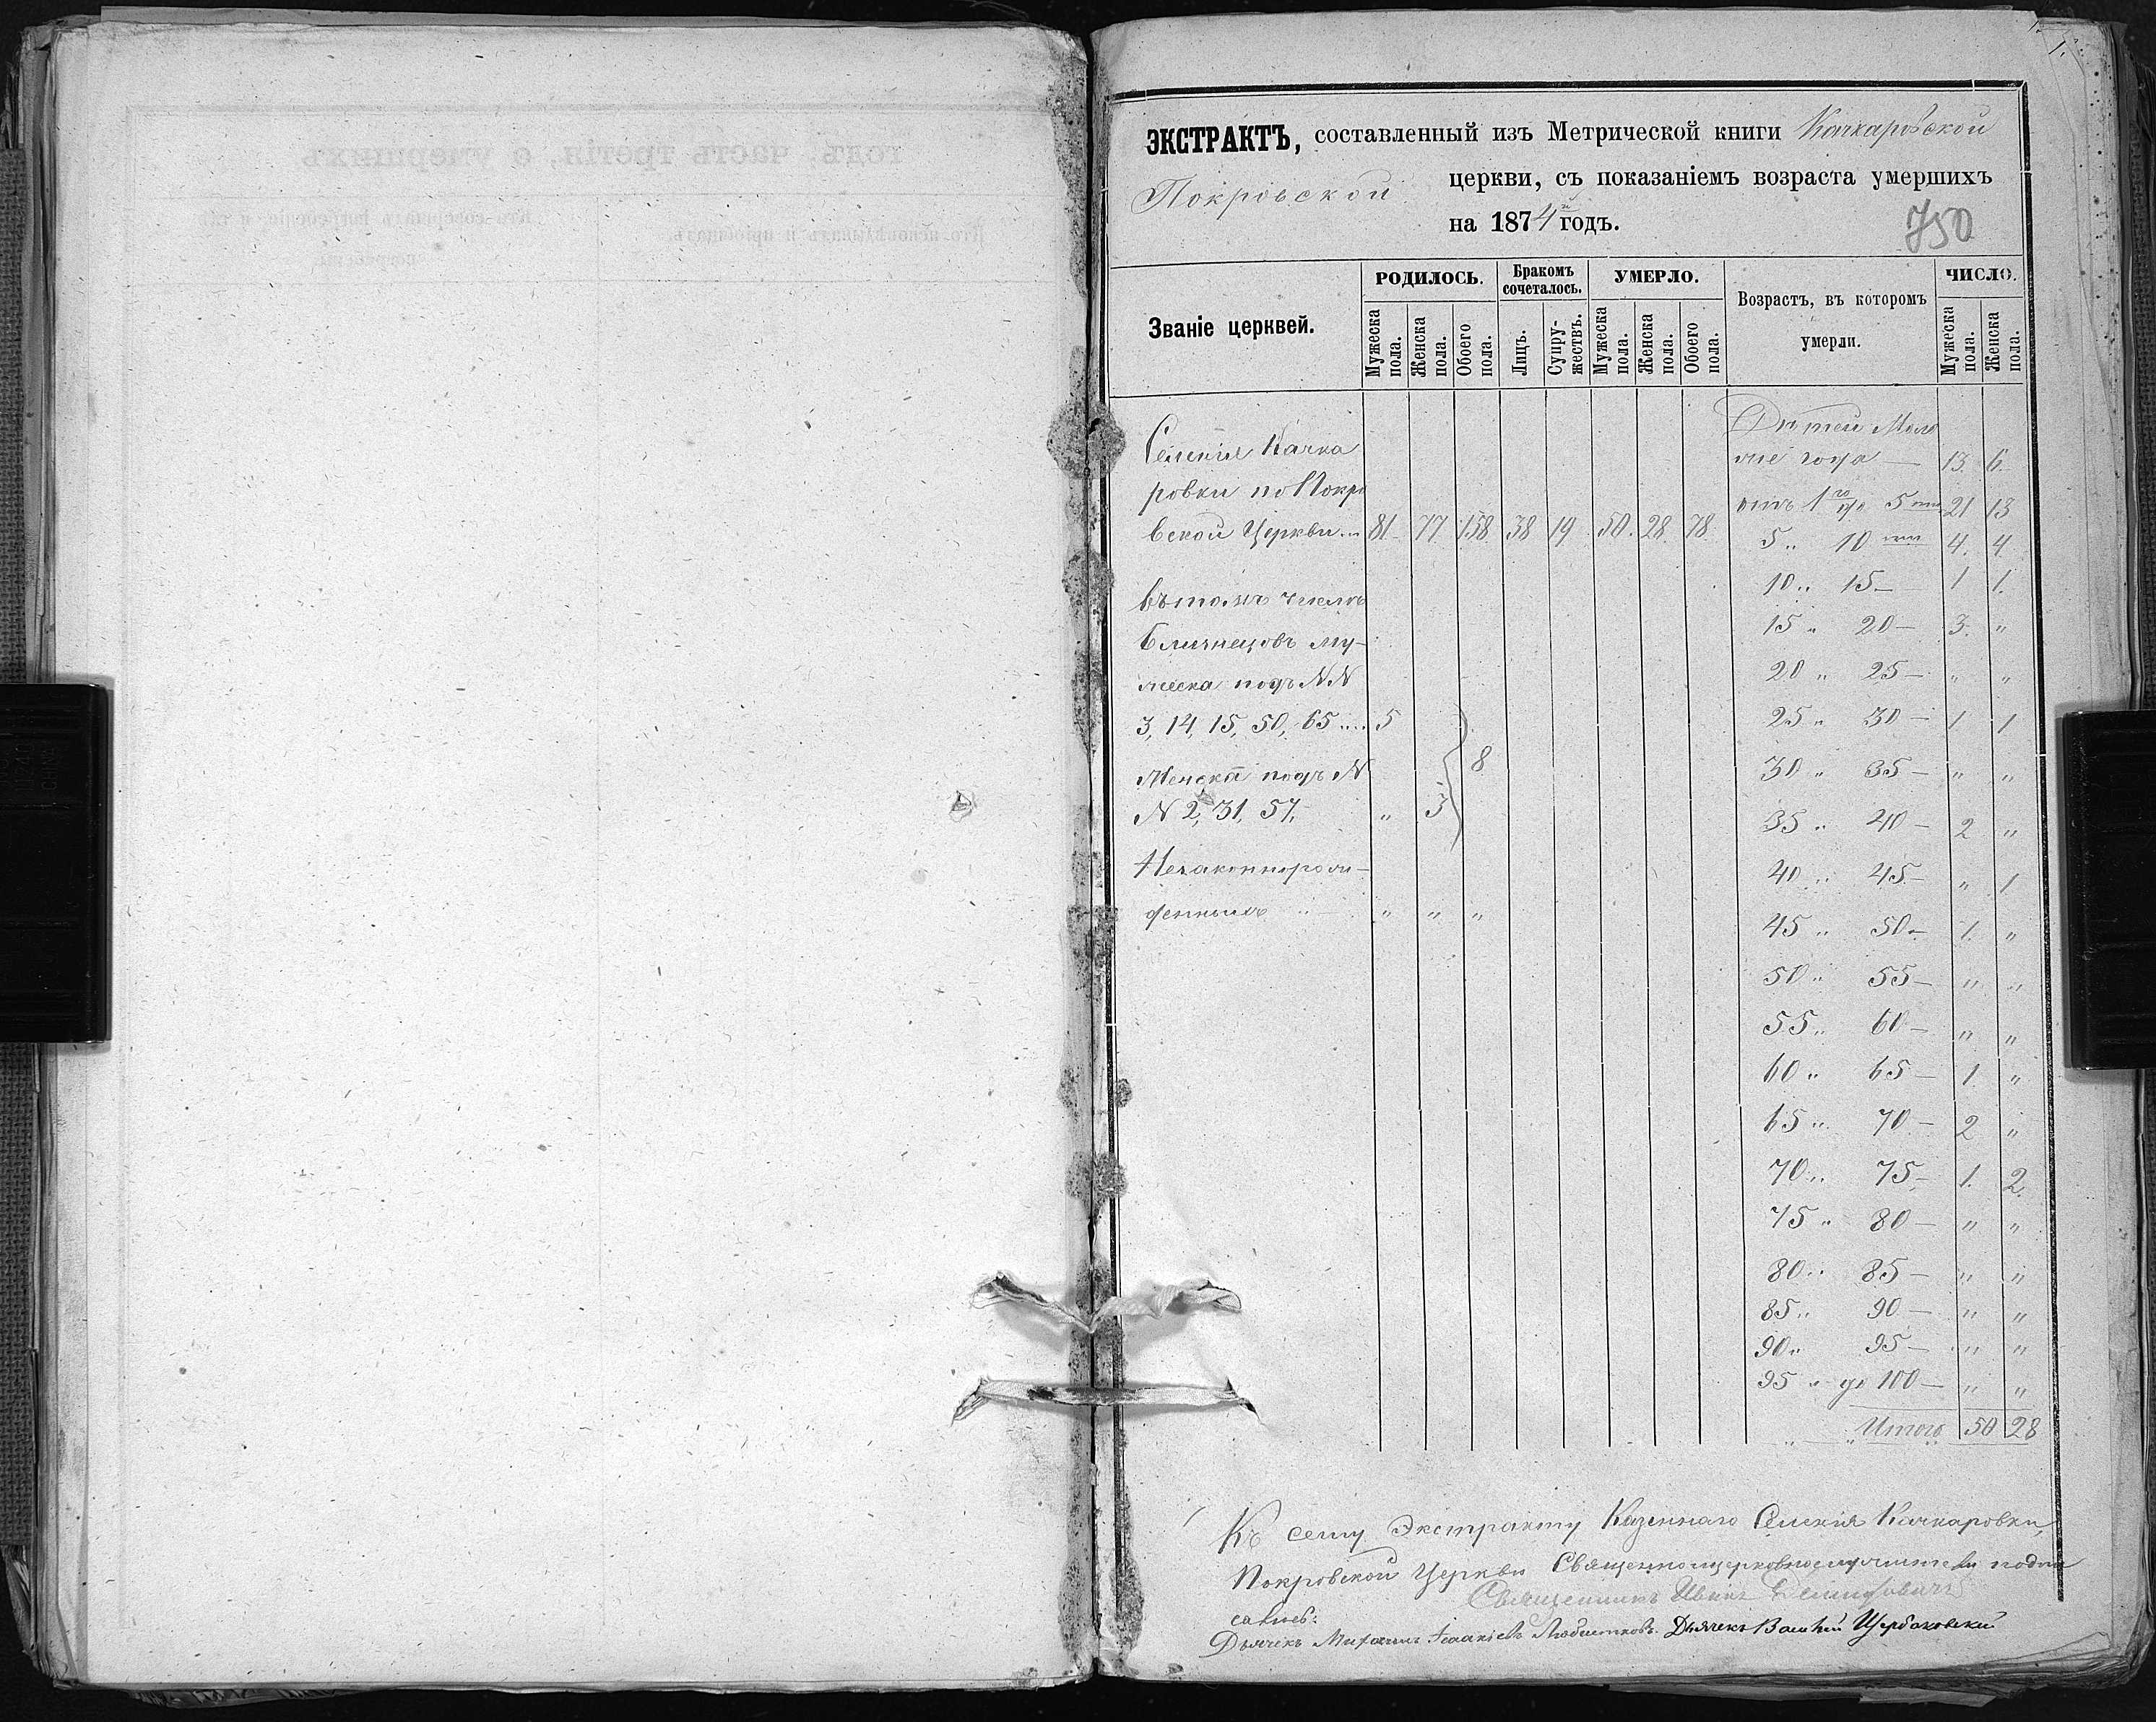 1.
ЭКСТРАКТЪ, составленный изъ Метрической книги Качкаровской
Покровской церкви, съ показаніемъ возраста умершихъ
на 1874й годъ.
750
Званіе церквей.
РОДИЛОСЬ.
Мужеска пола.
Женска пола.
Обоего пола.
Бракомъ сочеталось.
Лицъ.
Супру-жествъ.
УМЕРЛО.
Мужеска пола.
Женска пола.
Обоего пола.
Возрастъ, въ которомъ
умерли.
ЧИСЛО.
Мужеска пола.
Женска пола.
Селенія Качка
ровки по Покро
вской Церкви... 81. 77 158. 38 19 50. 28. 78.
Въ томъ числѣ
близнецовъ му-
жеска подъ NN
3, 14, 15, 50, 65 .... 5
8
Женска подъ N
N 2, 31, 57, " 3
Незаконнорож-
денныхъ " " "
Дѣтей Моло
же года — 13. 6
отъ 1го до 5ти 21 13
5 " 10ти 4. 4
10 " 15 — 1 1.
15 " 20 — 3. "
20 " 25 — " "
25 " 30 — 1 1
30 " 35 — " "
35 " 40 — 2 "
40 " 45 — " 1
45 " 50 — 1. "
50 " 55 — " "
55 " 60 — " "
60 " 65 — 1. "
65 " 70 — 2 "
70 " 75 — 1. 2.
75 " 80 — " "
80 " 85 — " "
85 " 90 — " "
90 " 95 — " "
95 " до 100 — " "
Итого 50 28
Къ сему Экстракту Казеннаго Селенія Качкаровки,
Покровской Церкви Священноцерковнослужители подпи
сались:
Священникъ Иванъ
Дьячекъ Михаилъ Дьячекъ Василій Щербаковскій